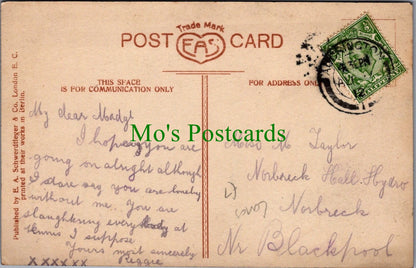 Trade Mark
POST CARD
EAS
THIS SPACE
IS FOR COMMUNICATION ONLY
FOR ADDRESS ONLY
Published by E. A. Schwerdtfeger & Co., London E. C.
printed at their works in Berlin.
Mo's Postcards
My dear Madge
I hope you are
going on alright although
I dare say you are lonely
without me. You are
slaughtering everybody at
tennis I suppose.
Yours most sincerely
Reggie
xxxxxx
Miss M Taylor
Norbreck Hall Hydro
Norbreck
Nr Blackpool